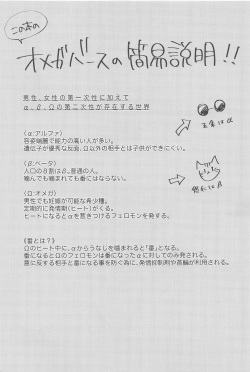 この本の
オメガバースの簡易説明!!
男性、女性の第一次性に加えて
α、β、Ωの第二次性が存在する世界
〈α:アルファ〉
容姿端麗で能力の高い人が多い。
遺伝子が優秀な反面、Ω以外の相手とは子供ができにくい。
〈β:ベータ〉
人口の8割はβ。普通の人。
噛んでも噛まれても番にはならない。
〈Ω:オメガ〉
男性でも妊娠が可能な希少種。
定期的に発情期(ヒート)がくる。
ヒートになるとαを惹きつけるフェロモンを発する。
《番とは?》
Ωのヒート中に、αからうなじを噛まれると「番」となる。
番になるとΩのフェロモンは番になったαに対してのみ発される。
意に反する相手と番になる事を防ぐ為に、発情抑制剤や首輪が利用される。
はα
はα